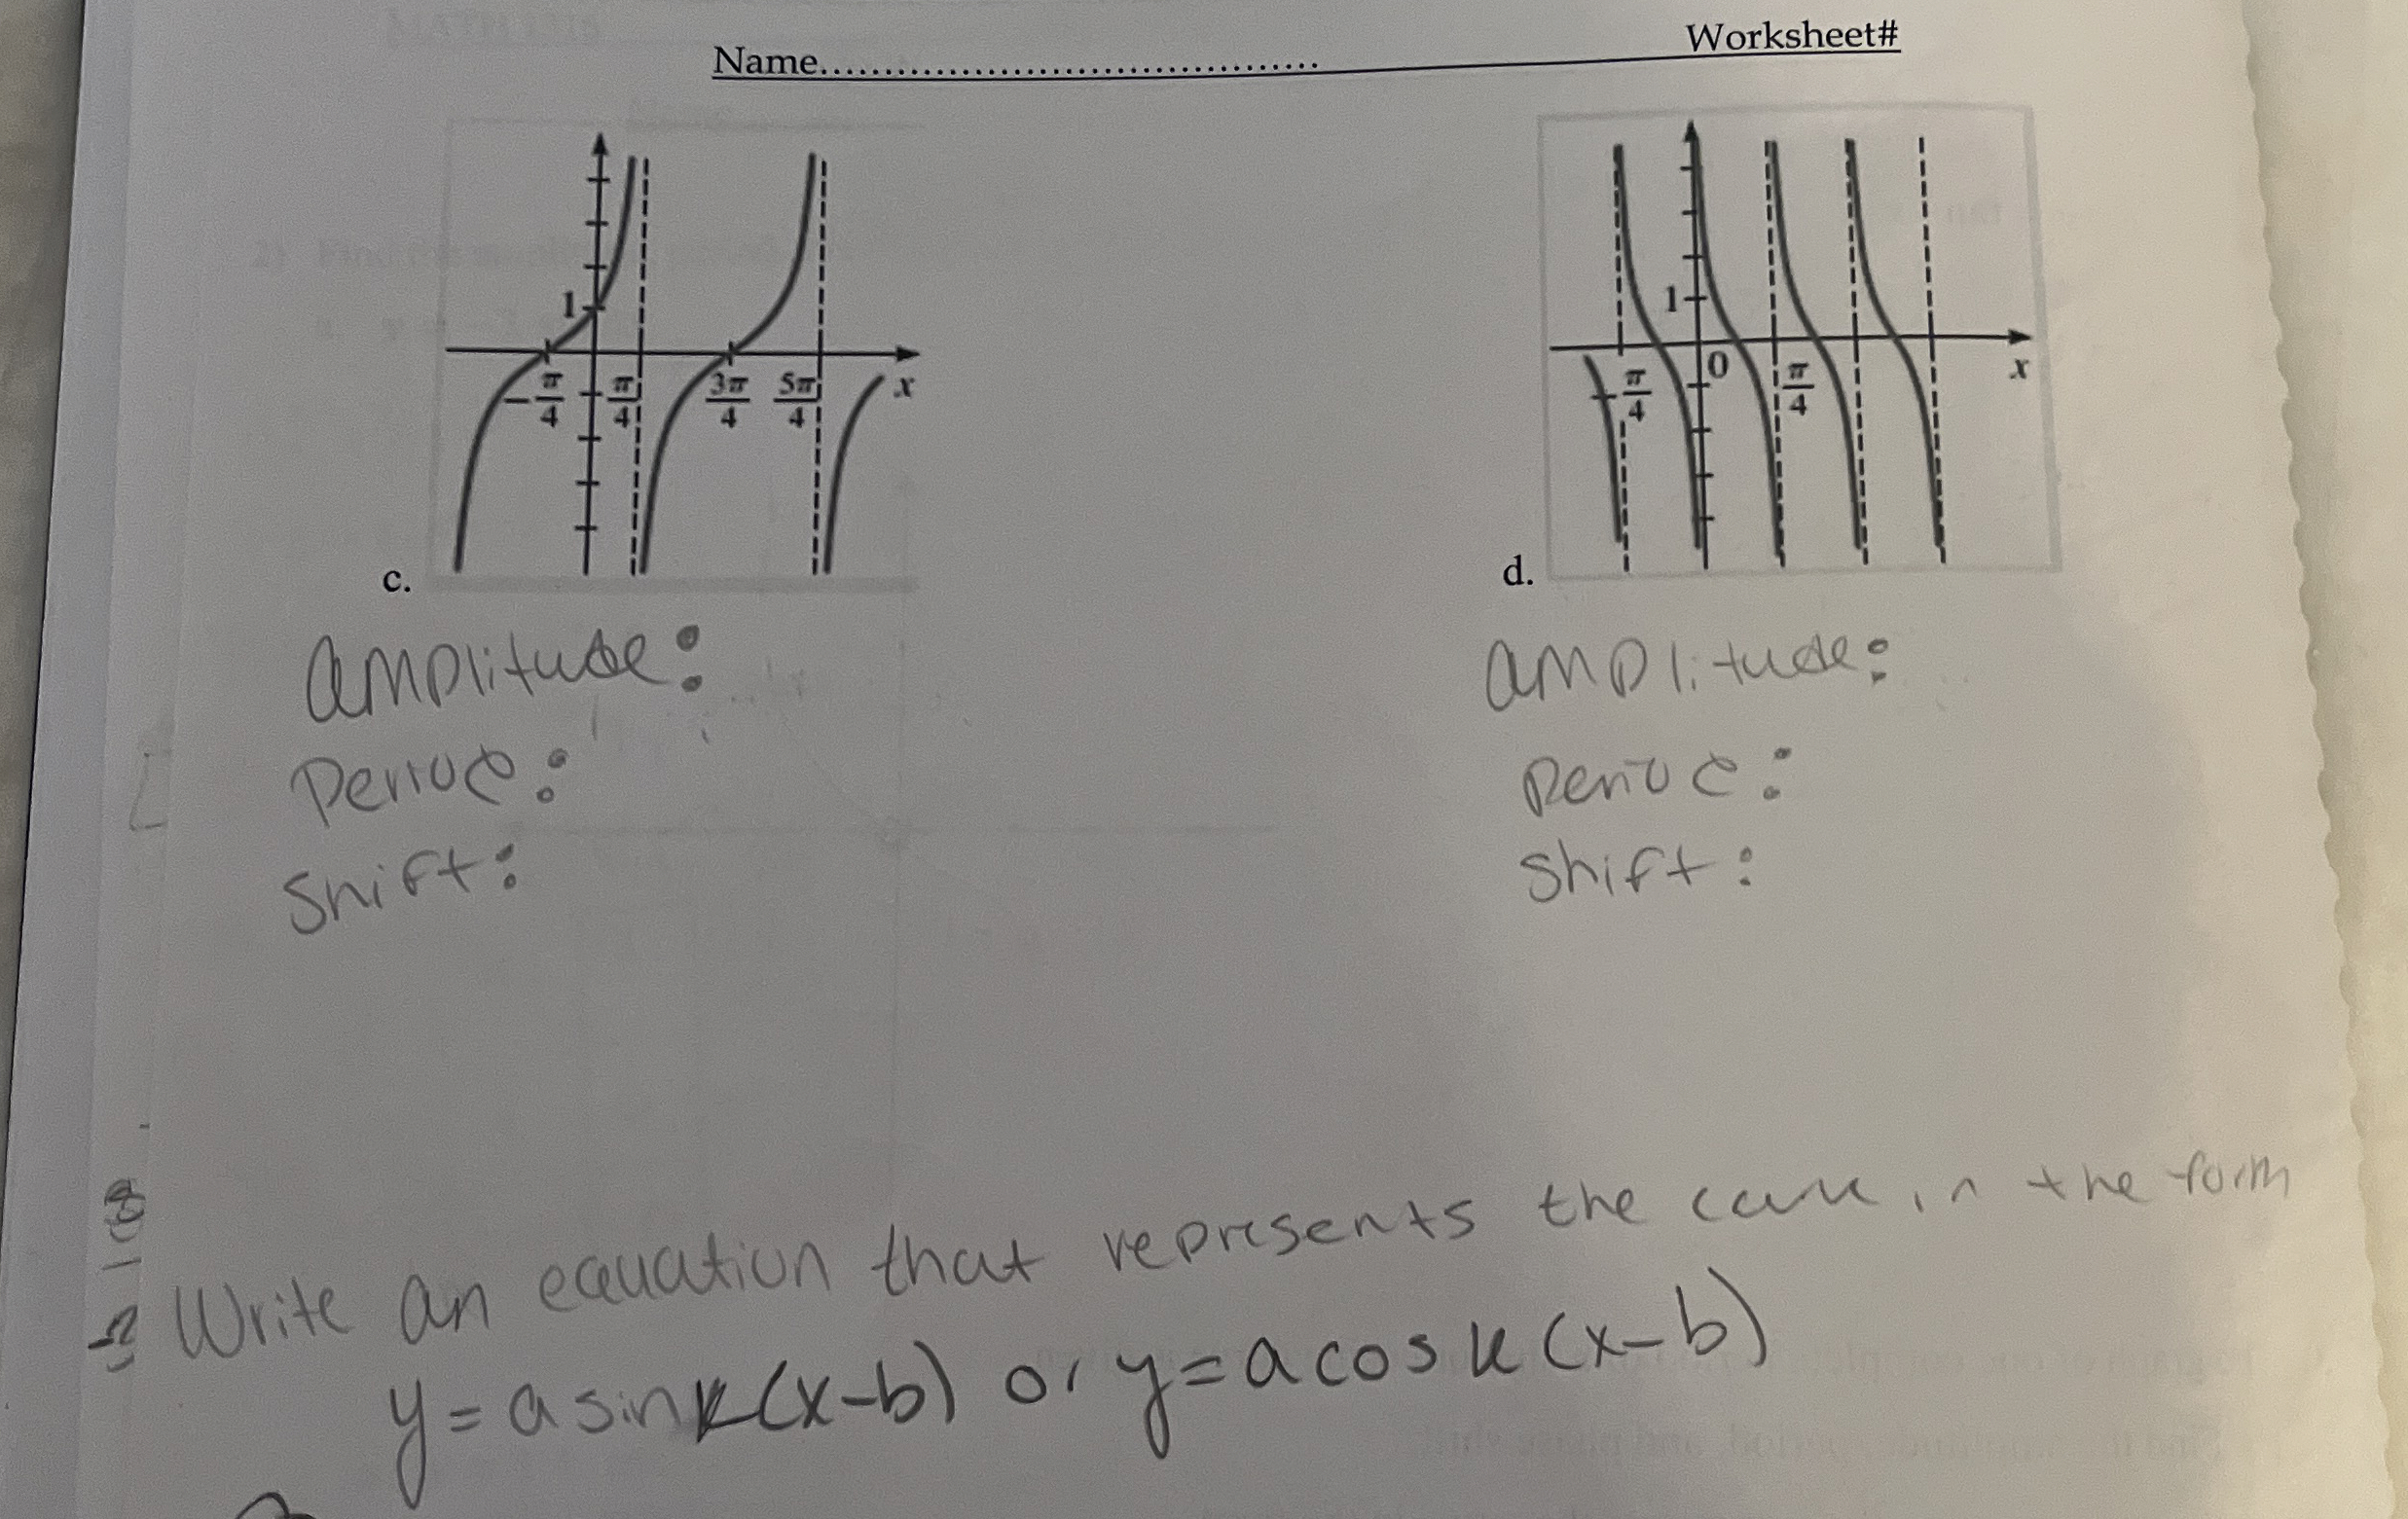 Name.......................................
Worksheet#
1
-π/4 π/4 3π/4 5π/4 x
c.
1
0
-π/4 π/4 x
d.
amplitude:
Period:
Shift:
amplitude:
Period:
Shift:
Write an equation that represents the curve in the form
y = a sin k(x-b) or y = a cos k (x-b)